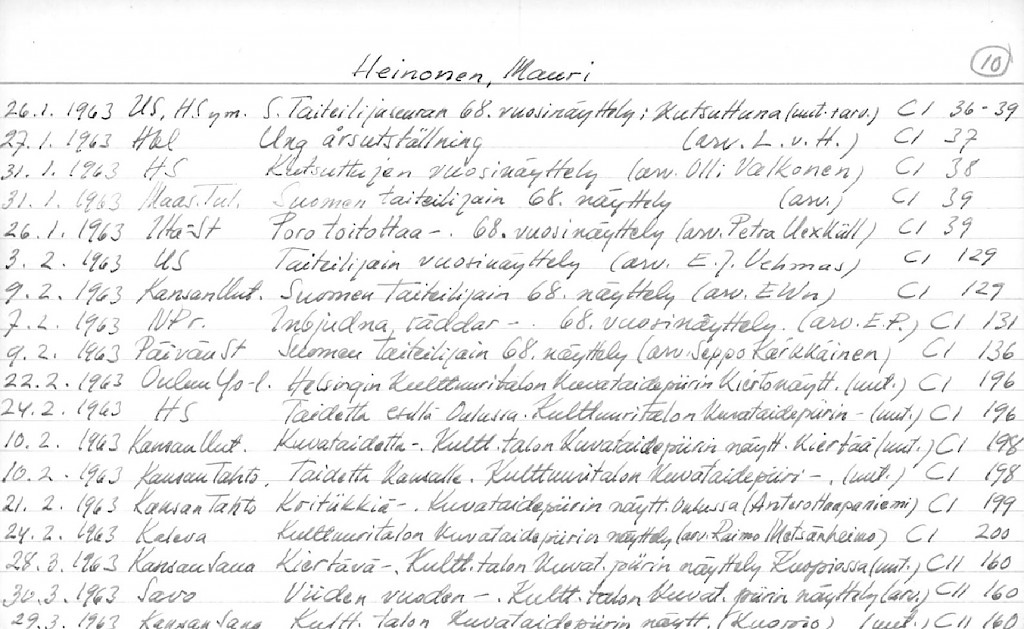 Heinonen, Mauri 10
26.1. 1963 US, HS ym. S. Taiteilijaseuran 68. vuosinäyttely; Kutsuttuna (uut. + arv.) CI 36-39
27.1. 1963 Hbl Ung årsutställning (arv. L. v. H.) CI 37
31.1. 1963 HS Kutsuttujen vuosinäyttely (arv. Olli Valkonen) CI 38
31.1. 1963 Maas.Tul. Suomen taiteilijain 68. näyttely (arv.) CI 39
26.1. 1963 Ilta-St Poro toitottaa -. 68. vuosinäyttely (arv. Petra Uexküll) CI 39
3.2. 1963 US Taiteilijain vuosinäyttely (arv. E.J. Vehmas) CI 129
9.2. 1963 KansanUut. Suomen taiteilijain 68. näyttely (arv. EWn) CI 129
7.2. 1963 NPr. Inbjudna, räddar -. 68. vuosinäyttely. (arv. E.P.) CI 131
9.2. 1963 PäivänSt Suomen taiteilijain 68. näyttely (arv. Seppo Kärkkäinen) CI 136
22.2. 1963 Oulun Yo-l. Helsingin Kulttuuritalon Kuvataidepiirin Kiertonäytt. (uut.) CI 196
24.2. 1963 HS Taidetta esillä Oulussa. Kulttuuritalon Kuvataidepiirin - (uut.) CI 196
10.2. 1963 KansanUut. Kuvataidetta -. Kultt.talon Kuvataidepiirin näytt. Kiertää (uut.) CI 198
10.2. 1963 KansanTahto, Taidetta Kansalle. Kulttuuritalon Kuvataidepiiri -. (uut.) CI 198
21.2. 1963 KansanTahto Kritiikkiä -. Kuvataidepiirin näytt. Oulussa (Antero Haapaniemi) CI 199
24.2. 1963 Kaleva Kulttuuritalon Kuvataidepiirin näyttely (arv. Raimo Metsänheimo) CI 200
28.3. 1963 KansanSana Kiertävä -. Kultt.talon Kuvat.piirin näyttely Kuopiossa (uut.) CII 160
30.3. 1963 Savo Viiden vuoden -. Kultt.talon Kuvat.piirin näyttely (arv.) CII 160
29.3. 1963 KansanSana Kultt. talon Kuvataidepiirin näytt. (Kuopio) (uut.) CII 160